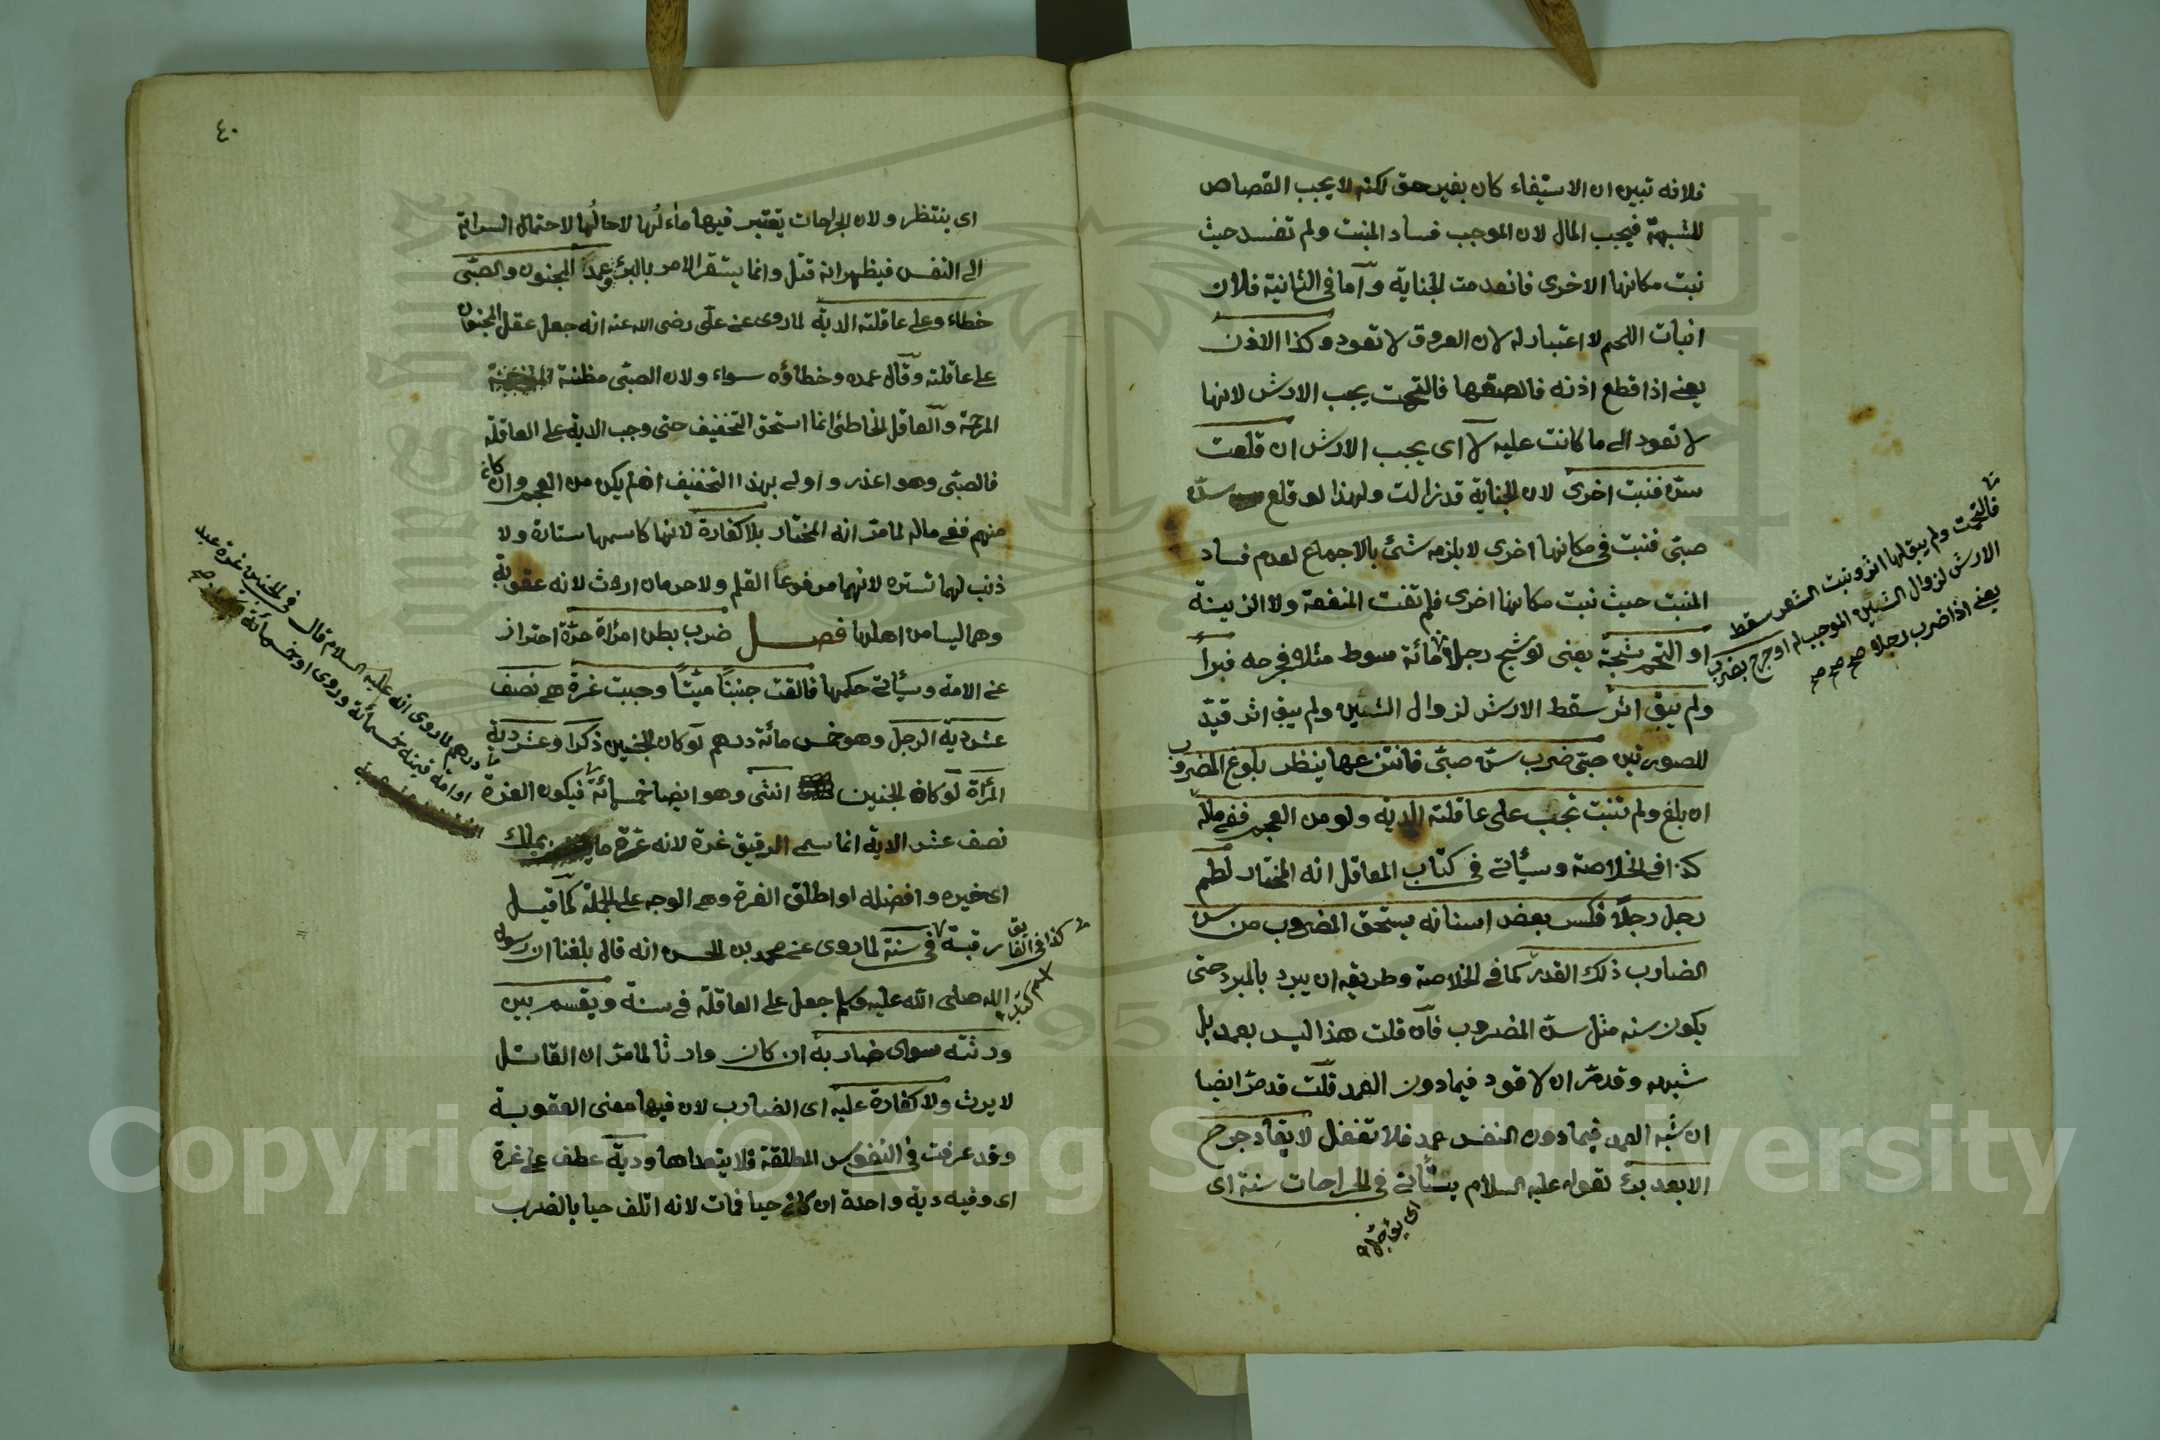 فلانه تبين ان الاستيفاء كان بغير حق لكنه لا يجب القصاص
للشبهة فيجب المال لان الموجب فساد المنبت ولم تفسد حيث
نبت مكانها الاخرى فانعدمت الجناية واما فى الثانية فلان
انبات اللحم لا اعتبار له لان العروق لا تعود وكذا الاذن
يعنى اذا قطع اذنه فالصقها فالتحمت يجب الارش لانها
لا تعود الى ما كانت عليه لا اى يجب الارش ان قلعت
سنه فنبت اخرى لان الجناية قد زالت ولهذا لو قلع سن
صبى فنبت فى مكانها اخرى لا يلزمه شئ بالاجماع لعدم فساد
المنبت حيث نبت مكانها اخرى فلم تفت المنفعة ولا الزينة
او التحم شجة يعنى لو شج رجلا مائة سوط مثلا فجرحه فبرأ
ولم يبق اثر سقط الارش لزوال الشين ولم يبق اثر قيد
للصورتين صبى ضرب سن صبى فانتزعها ينظر بلوغ المضروب
ان بلغ ولم تنبت تجب على عاقلته الدية ولو من العجم ففى ماله
كذا فى الخلاصة وسيأتى فى كتاب المعاقل انه المختار لطم
رجل رجلا فكسر بعض اسنانه يستحق المضروب من سن
الضارب ذلك القدر كما فى الخلاصة وطريقه ان يبرد بالمبرد حتى
يكون سنه مثل سن المضروب فان قلت هذا ليس بعمد بل
شبهه وقد مر ان لا قود فيما دون العمد قلت قد مر ايضا
ان شبه العمد فيما دون النفس عمد فلا تغفل لا يقاد جرح
الا بعد برء لقوله عليه السلام يستأنى فى الجراحات سنة اى
اى يؤجل
فالتحمت ولم يبق لها اثر ونبت الشعر سقط
الارش لزوال الشين الموجب له او جرح بضرب
يعنى اذا ضرب رجلا صح صح صح
٤٠
اى ينتظر ولان الجراحات يعتبر فيها مآلها لا حالها لاحتمال السراية
الى النفس فيظهر انه قتل وانما يستقر الامر بالبرء وعمد المجنون والصبى
خطاء وعلى عاقلته الدية لما روى عن على رضى الله عنه انه جعل عقل المجنون
على عاقلته وقال عمده وخطاؤه سواء ولان الصبى مظنة
المرحمة والعاقل الخاطئ انما استحق التخفيف حتى وجب الدية على العاقلة
فالصبى وهو اعذر واولى بهذا التخفيف اذا لم يكن من العجم وان كان
منهم ففى ماله لما مر انه المختار بلا كفارة لانها كاسمها ستارة ولا
ذنب لهما تستره لانهما مرفوعا القلم ولا حرمان ارث لانه عقوبة
وهما ليسا من اهلها فصل ضرب بطن امرأة حرة احتراز
عن الامة وسيأتى حكمها فالقت جنينا ميتا وجبت غرة هى نصف
عشر دية الرجل وهو خمس مائة درهم لو كان الجنين ذكرا وعشر دية
المرأة لو كان الجنين انثى وهو ايضا خمسمائة فيكون الغرة
نصف عشر الدية انما سمى الرقيق غرة لانه غرة ما يملك
اى خيره وافضله او اطلق الغرة وهى الوجه على الجملة كما قيل
رقبة فى سنة لما روى عن محمد بن الحسن انه قال بلغنا ان رسول
الله صلى الله عليه وسلم جعل على العاقلة فى سنة ويقسم بين
ورثته سوى ضاربه ان كان وارثا لما مر ان القاتل
لا يرث ولا كفارة عليه اى الضارب لان فيها معنى العقوبة
وقد عرفت فى النفوس المطلقة فلا يتعداها ودية عطف على غرة
اى وفيه دية واحدة ان كان حيا فمات لانه اتلف حيا بالضرب
درهم لما روى انه عليه السلام قال فى الجنين غرة عبد
او امة قيمته خمسمائة وروى او خمسمائة
كذا فى